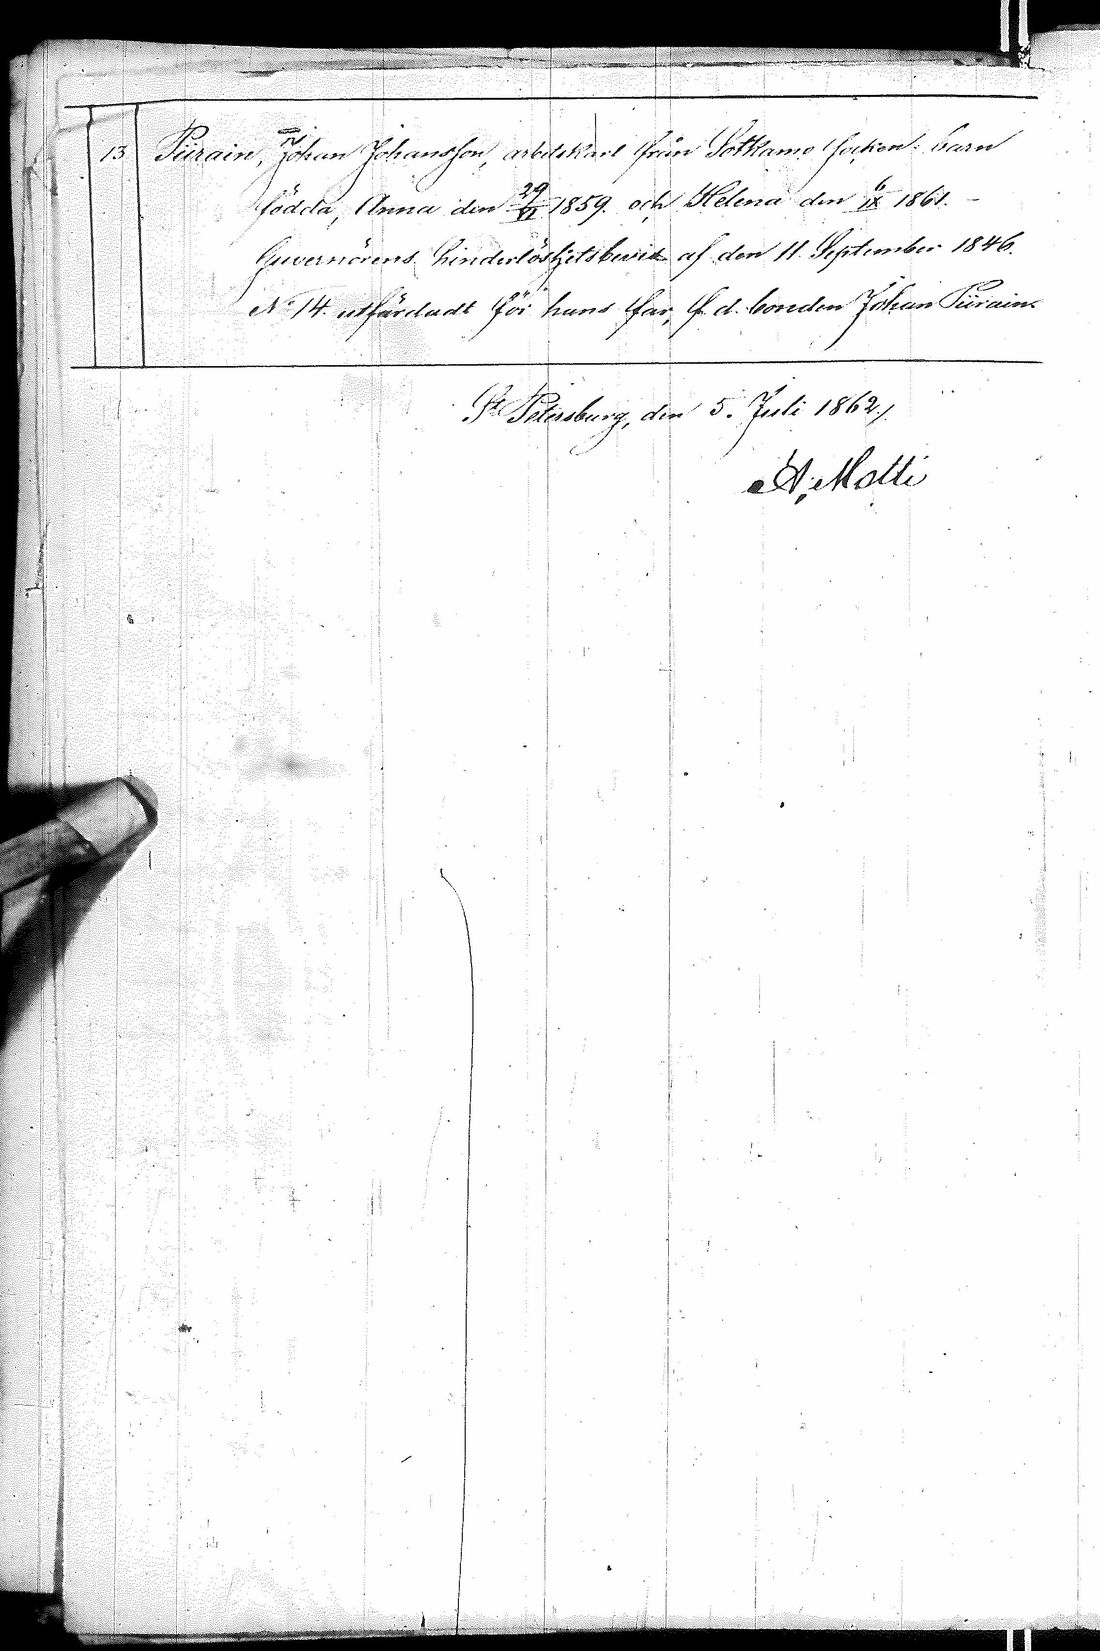 13 Piirain, Johan Johansson, arbetskarl från Sotkamo socken: barn
födda, Anna den 29/VI 1859. och Helena den 6/IX 1861. -
Guvernörens hinderlöshetsbevis af den 11. September 1846.
No 14. utfärdadt för hans far, f. d. bonden Johan Piirain.
St Petersburg, den 5. Juli 1862.
A. Motti